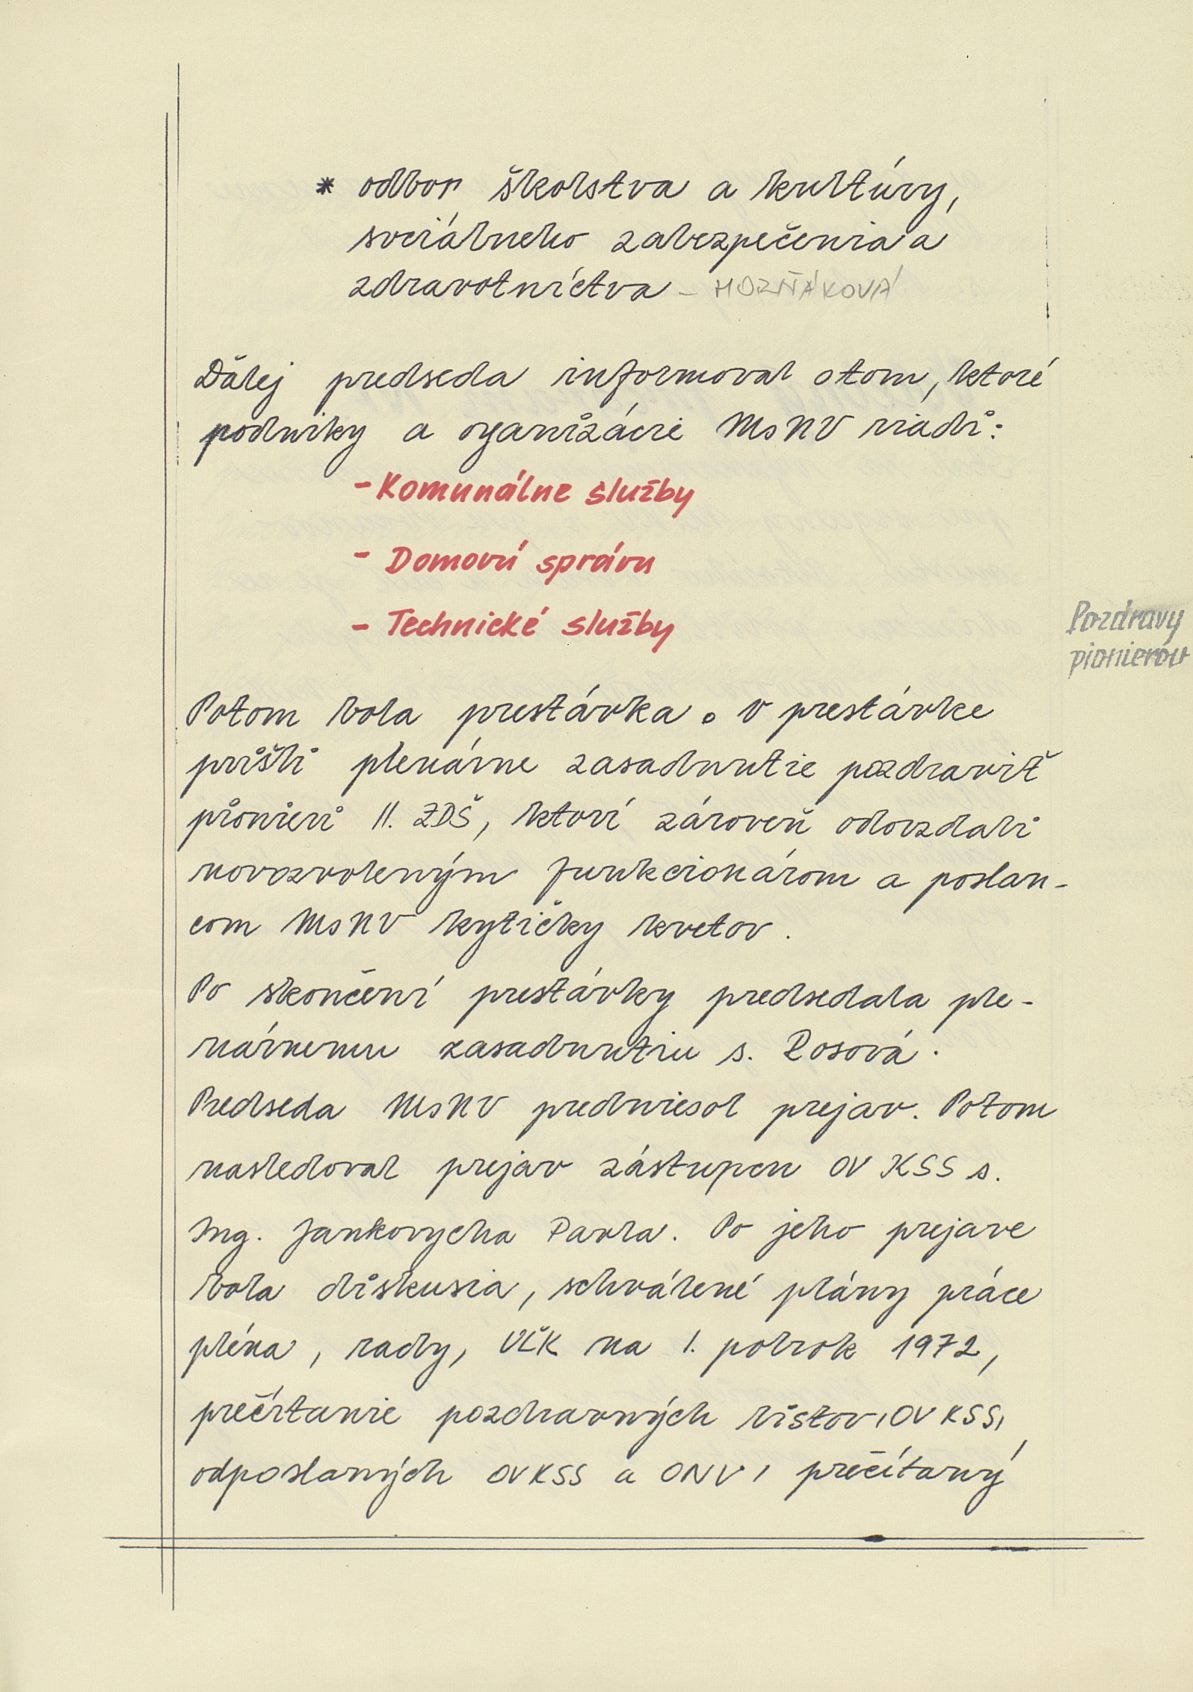 * odbor školstva a kultúry,
sociálneho zabezpečenia a
zdravotníctva -
Ďalej predseda informoval o tom, ktoré
podniky a oganizácie MsNV riadi:
- Komunálne služby
- Domovú správu
- Technické služby
Pozdravy
pionierov
Potom bola prestávka. V prestávke
prišli plenárne zasadnutie pozdraviť
pionieri II. ZDŠ, ktorí zároveň odovzdali
novozvoleným funkcionárom a poslan-
com MsNV kytičky kvetov.
Po skončení prestávky predsedala ple-
nárnemu zasadnutiu s. Rosová.
Predseda MsNV predniesol prejav. Potom
nasledoval prejav zástupcu OV KSS s.
Ing. Jankovycha Pavla. Po jeho prejave
bola diskusia, schválené plány práce
pléna, rady, VĽK na 1. polrok 1972,
prečítanie pozdravných listov, OV KSS,
odposlaných OV KSS a ONV, prečítaný